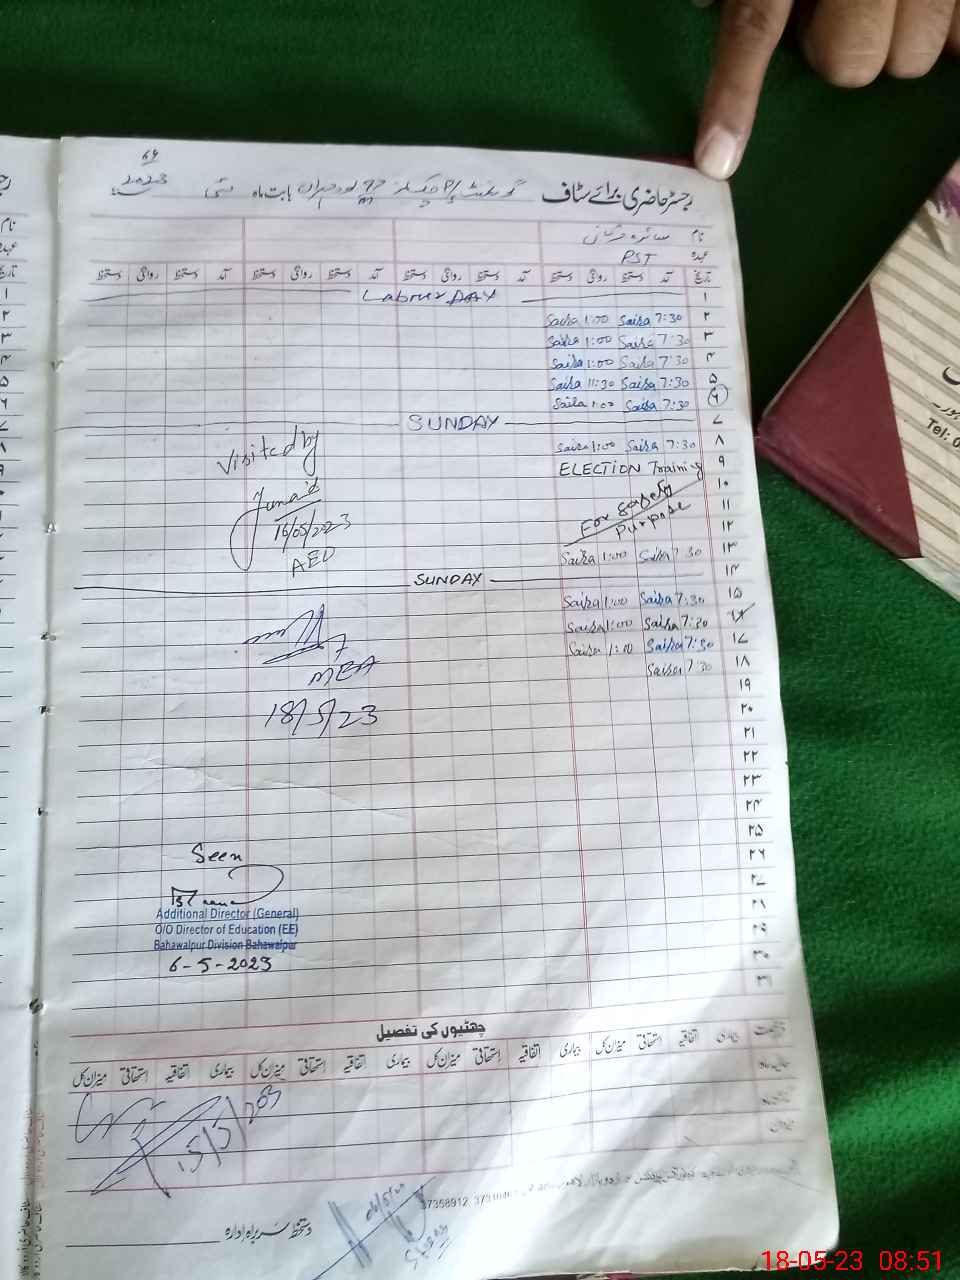 2023
رجسٹر حاضری برائے سٹاف
بابت ماہ مئی
نام
عہدہ PST
تاریخ آمد دستخط روانگی دستخط آمد دستخط روانگی دستخط آمد دستخط روانگی دستخط
۱ Labour DAY
۲ 7:30 Saira 1:00 Saira
۳ 7:30 Saira 1:00 Saira
۴ 7:30 Saira 1:00 Saira
۵ 7:30 Saira 11:30 Saira
۶ 7:30 Saira 1:00 Saira
۷ SUNDAY
۸ 7:30 Saira 1:00 Saira
۹ ELECTION Training
۱۰
۱۱ For Safety
۱۲ Purpose
۱۳ 7:30 Saira 1:00 Saira
۱۴ SUNDAY
۱۵ 7:30 Saira 1:00 Saira
۱۶ 7:30 Saira 1:00 Saira
۱۷ 7:30 Saira 1:00 Saira
۱۸ 7:30 Saira
۱۹
۲۰
۲۱
۲۲
۲۳
۲۴
۲۵
۲۶
۲۷
۲۸
۲۹
۳۰
۳۱
Visited by
Junaid
16/05/2023
AEO
MEA
18/5/23
Seen
Additional Director (General)
O/O Director of Education (EE)
Bahawalpur Division Bahawalpur
6-5-2023
چھٹیوں کی تفصیل
بیماری اتفاقیہ استحقاقی میزان کل بیماری اتفاقیہ استحقاقی میزان کل بیماری اتفاقیہ استحقاقی میزان کل
دستخط سربراہ ادارہ
37358912
Tel:
18-05-23 08:51